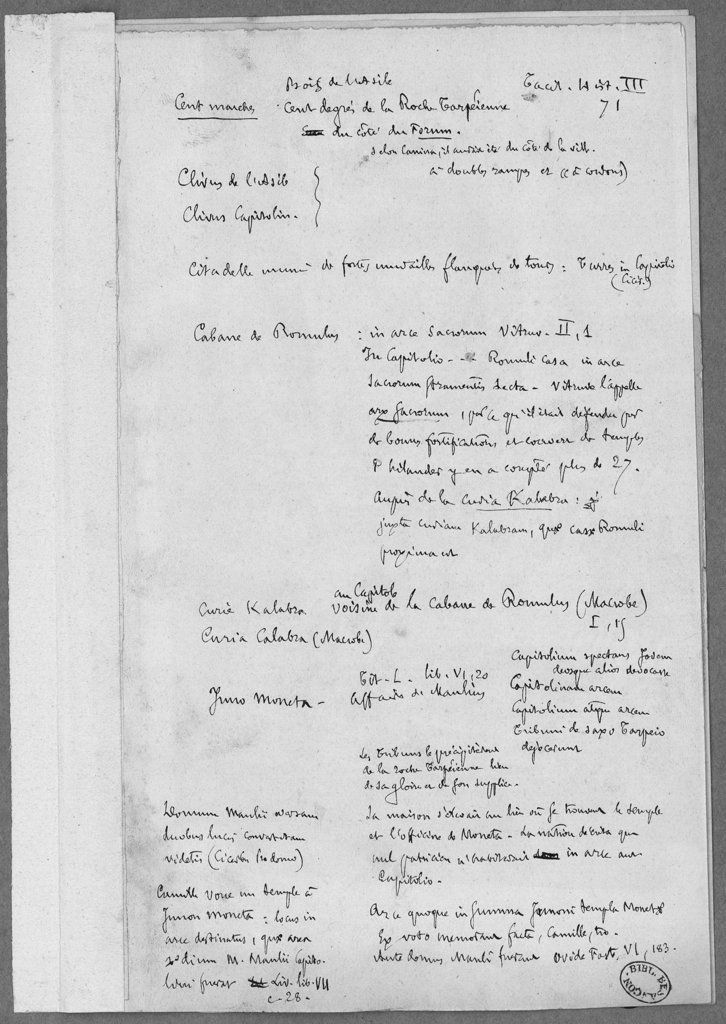 Bois de l'Asile
Tacit. Hist. III
71
Cent marches : cent degrés de la Roche Tarpéienne
du côté du Forum.
selon Canina, il aurait été du côté de la ville.
à doubles rampes et (à cordons)
Clivus de l'Asile
Clivus Capitolin.
Citadelle munie de fortes murailles flanquées de tours : Turres in Capitolio
(Cicér.)
Cabane de Romulus : in arce sacrorum Vitruv. II, 1
In Capitolio - - Romuli casa in arce
sacrorum stramentis tecta - Vitruve l'appelle
arx sacrorum, parce qu'il était défendu par
de bonnes fortifications et couvert de temples
Philander y en a compté plus de 27.
Auprès de la curia Kalabra :
juxta curiam Kalabram, quæ casæ Romuli
proxima est
au Capitole
Curie Kalabra voisine de la cabane de Romulus (Macrobe)
I, 15
Curia Calabra (Macrobe)
Juno Moneta -
Tit. L. lib. VI, 20
Affaire de Manlius
Capitolium spectans Jovem
deosque alios devocasse
Capitolinam arcem
Capitolium atque arcem
Tribuni de saxo Tarpeio
dejecerunt
Les Tribuns le précipitèrent
de la roche Tarpéienne lieu
de sa gloire et de son supplice.
Domum Manlii eversam
duobus lucis convestitam
videtis (Cicéron Pro domo)
Sa maison s'élevait au lieu où se trouvent le temple
et l'officine de Moneta. La nation décréta que
nul patricien n'habiterait in arce aut
Capitolio.
Camille voue un temple à
Junon Moneta : locus in
arce destinatus, quæ area
ædium M. Manlii Capito-
lini fuerat Liv. lib. VII
c. 28.
Arce quoque in summa Junoni templa Monetæ
Ex voto memorant facta, Camille, tuo.
Ante domus Manli fuerant Ovide Fast. VI, 183.
BIBL. BESANÇON